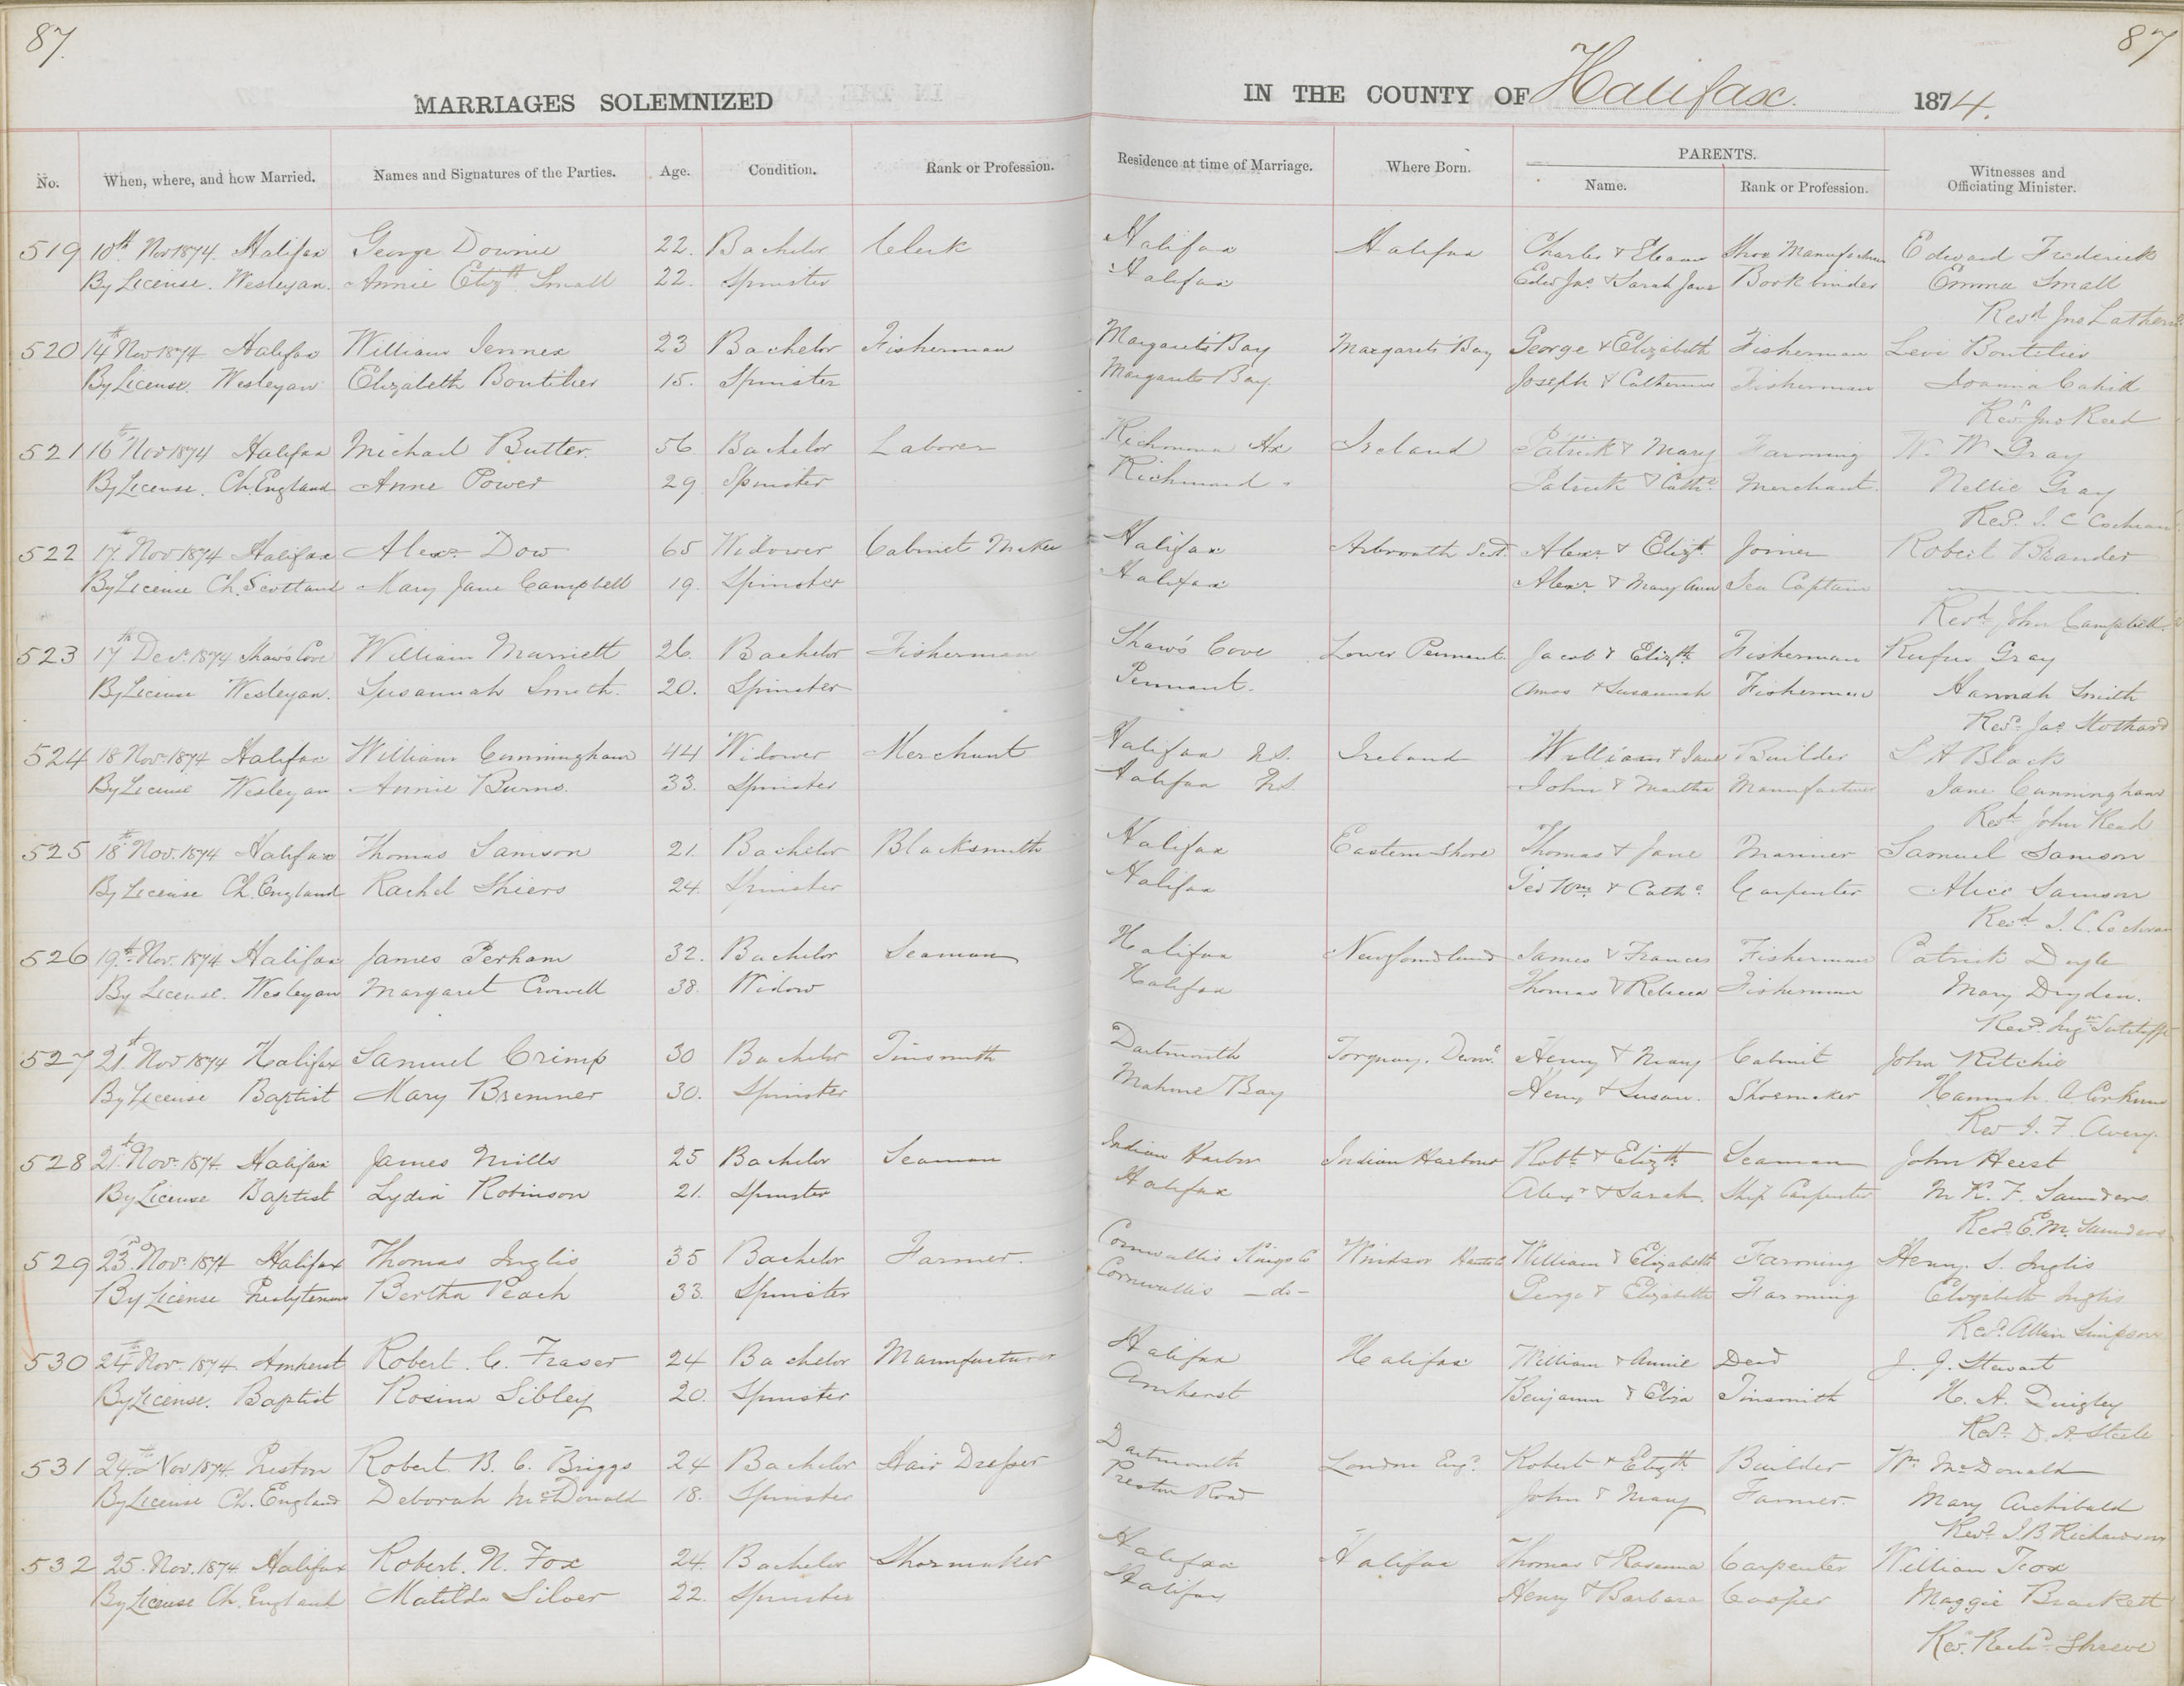 87.
87
MARRIAGES SOLEMNIZED IN THE COUNTY OF Halifax. 1874.
No. When, where, and how Married. Names and Signatures of the Parties. Age. Condition. Rank or Profession. Residence at time of Marriage. Where Born. PARENTS. Name. Rank or Profession. Witnesses and Officiating Minister.
519 10th Nov 1874. Halifax George Downie 22. Bachelor Clerk Halifax Halifax Charles & Eleanor Shoe Manufacturer Edward Frederick
By License. Wesleyan. Annie Elizth Small 22. Spinster Halifax Edwd Jas & Sarah Jane Bookbinder Emma Small
Revd Jno Lathern
520 14th Nov 1874 Halifax William Jennex 23 Bachelor Fisherman Margarets Bay Margarets Bay George & Elizabeth Fisherman Levi Boutilier
By License. Wesleyan Elizabeth Boutilier 15. Spinster Margarets Bay Joseph & Catherine Fisherman Joanna Cahill
Revd Jno Read
521 16th Nov 1874 Halifax Michael Butter. 56 Bachelor Laborer Richmond Hx Ireland Patrick & Mary Farming W. W Gray
By License. Ch. England Anne Power 29 Spinster Richmond " Patrick & Cathe Merchant. Nellie Gray
Revd. J. C Cochran
522 17th Nov 1874 Halifax Alexr Dow 65 Widower Cabinet Maker Halifax Arbroath Scot. Alexr & Elizth Joiner Robert Brander
By License Ch. Scotland Mary Jane Campbell 19. Spinster Halifax Alexr & Mary Ann Sea Captain
Revd John Campbell.
523 17th Decr. 1874 Shaws Cove William Marriett 26. Bachelor Fisherman Shaw's Cove Lower Pennant Jacob & Elizth Fisherman Rufus Gray
By License Wesleyan. Susannah Smith. 20. Spinster Pennant. Amos & Susannah Fisherman Hannah Smith
Revd. Jas Stothard
524 18 Nov 1874 Halifax William Cunningham 44 Widower Merchant Halifax N.S. Ireland William & Jane Builder S A Black
By License Wesleyan Annie Burns. 33. Spinster Halifax N.S. John & Martha Manufacturer Jane Cunningham
Revd John Read
525 18th Nov. 1874 Halifax Thomas Samson 21. Bachelor Blacksmith Halifax Eastern Shore Thomas & Jane Mariner Samuel Samson
By License Ch. England Rachel Shiers 24 Spinster Halifax Geo Wm. & Cathe Carpenter Alice Samson
Revd J. C. Cochran
526 19th Nov. 1874 Halifax James Perham 32. Bachelor Seaman Halifax Newfoundland James & Frances Fisherman Patrick Doyle
By License. Wesleyan Margaret Crowell 38. Widow Halifax Thomas & Rebecca Fisherman Mary Dryden.
Revd. Ingm Sutcliffe
527 21st Nov 1874 Halifax Samuel Crimp 30 Bachelor Tinsmith Dartmouth Torquay. Henry & Mary Cabinet John Ritchie
By License Baptist Mary Bremner 30. Spinster Mahone Bay Henry & Susan. Shoemaker Hannah. A Corkum
Rev J. F. Avery.
528 21st Nov. 1874 Halifax James Mills 25 Bachelor Seaman Indian Harbor Indian Harbour Robt & Elizth Seaman John Heist
By License Baptist Lydia Robinson 21. Spinster Halifax Alexr & Sarah. Ship Carpenter M K. F. Saunders.
Revd. E. M. Saunders
529 23rd Nov. 1874 Halifax Thomas Inglis 35 Bachelor Farmer. Cornwallis Kings Co Windsor Hants Co William & Elizabeth Farming Henry. S. Inglis
By License Presbyterian Bertha Peach 33. Spinster Cornwallis -do- George & Elizabeth Farming Elizabeth Inglis
Revd. Allan Simpson
530 24th Nov. 1874 Amherst Robert. C. Fraser 24 Bachelor Manufacturer Halifax Halifax William & Annie Dead J. J. Stewart
By License. Baptist Rosina Sibley 20. Spinster Amherst Benjamin & Eliza Tinsmith H. A. Quigley
Revd. D. A. Steele
531 24th Nov 1874 Preston Robert. B. C. Briggs 24 Bachelor Hair Dresser Dartmouth London Engd. Robert & Elizth Builder Wm McDonald
By License Ch. England Deborah McDonald 18. Spinster Preston Road John & Mary Farmer. Mary Archibald
Revd. J B Richardson
532 25. Nov. 1874 Halifax Robert. N. Fox 24. Bachelor Shoemaker Halifax Halifax Thomas & Rosanna Carpenter William Fox
By License Ch. England Matilda Silver 22. Spinster Halifax Henry & Barbara Cooper Maggie Brackett
Rev. Richd. Shreve